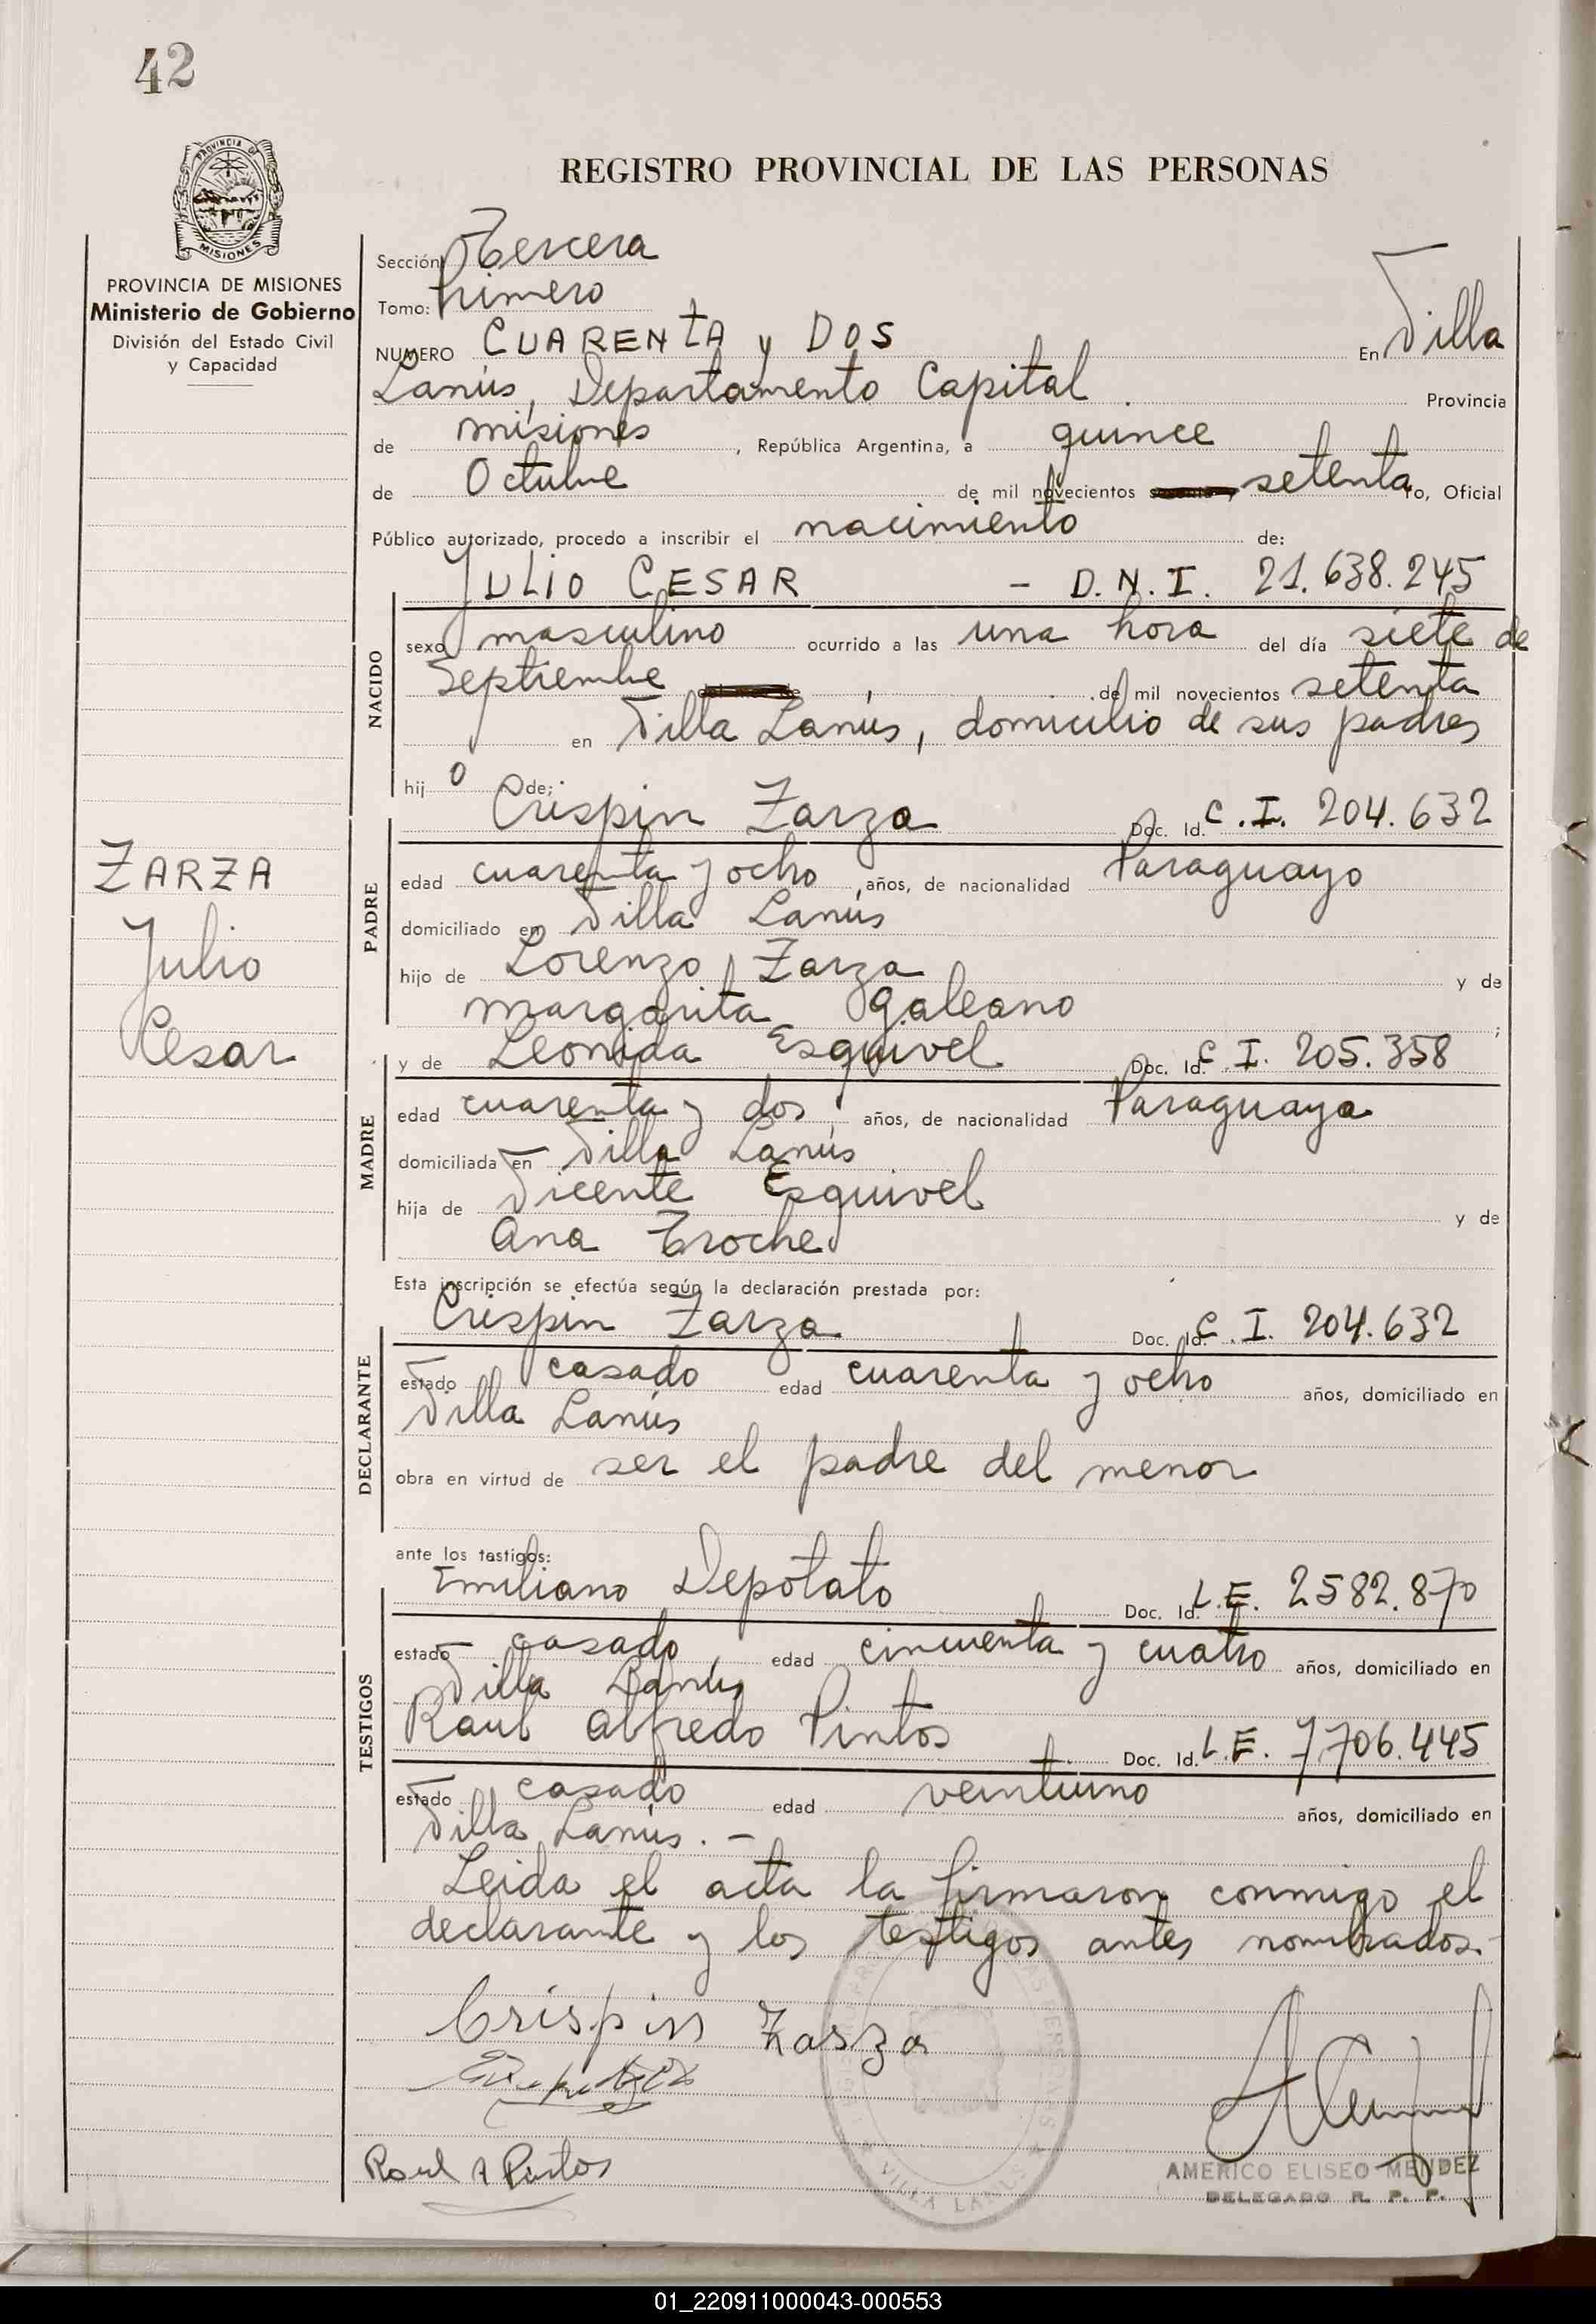 42
PROVINCIA DE
MISIONES
REGISTRO PROVINCIAL DE LAS PERSONAS
PROVINCIA DE MISIONES
Ministerio de Gobierno
División del Estado Civil
y Capacidad
Sección Tercera
Tomo: Primero
NUMERO CUARENTA y DOS En Villa
Lanús, Departamento Capital. Provincia
de misiones, República Argentina, a quince
de Octubre de mil novecientos setenta yo, Oficial
Público autorizado, procedo a inscribir el nacimiento de:
JULIO CESAR - D.N.I. 21.638.245
NACIDO
sexo masculino ocurrido a las una hora del día siete de
Septiembre de mil novecientos setenta
en Villa Lanús, domicilio de sus padres
hijo de:
Crispin Zarza Doc. Id. C.I. 204.632
PADRE
edad cuarenta y ocho años, de nacionalidad Paraguayo
domiciliado en Villa Lanús
hijo de Lorenzo Zarza y de
margarita Galeano;
y de Leonida Esquivel Doc. Id. C.I. 205.358
MADRE
edad cuarenta y dos años, de nacionalidad Paraguaya
domiciliada en Villa Lanús
hija de Vicente Esquivel y de
Ana Troche
ZARZA
Julio
Cesar
Esta inscripción se efectúa según la declaración prestada por:
Crispin Zarza Doc. Id. C.I. 204.632
DECLARANTE
estado casado edad cuarenta y ocho años, domiciliado en
Villa Lanús
obra en virtud de ser el padre del menor
ante los testigos:
Emiliano Depotato Doc. Id. L.E. 2582.870
TESTIGOS
estado casado, edad cincuenta y cuatro años, domiciliado en
Villa Lanús
Raul Alfredo Pintos Doc. Id. L.E. 7.706.445
estado casado edad veintiuno años, domiciliado en
Villa Lanús. -
Leida el acta la firmaron conmigo el
declarante y los testigos antes nombrados.-
Crispin Zarza
Raul A Pintos
VILLA LANUS
AMERICO ELISEO MENDEZ
DELEGADO R. P. P.
01_220911000043-000553